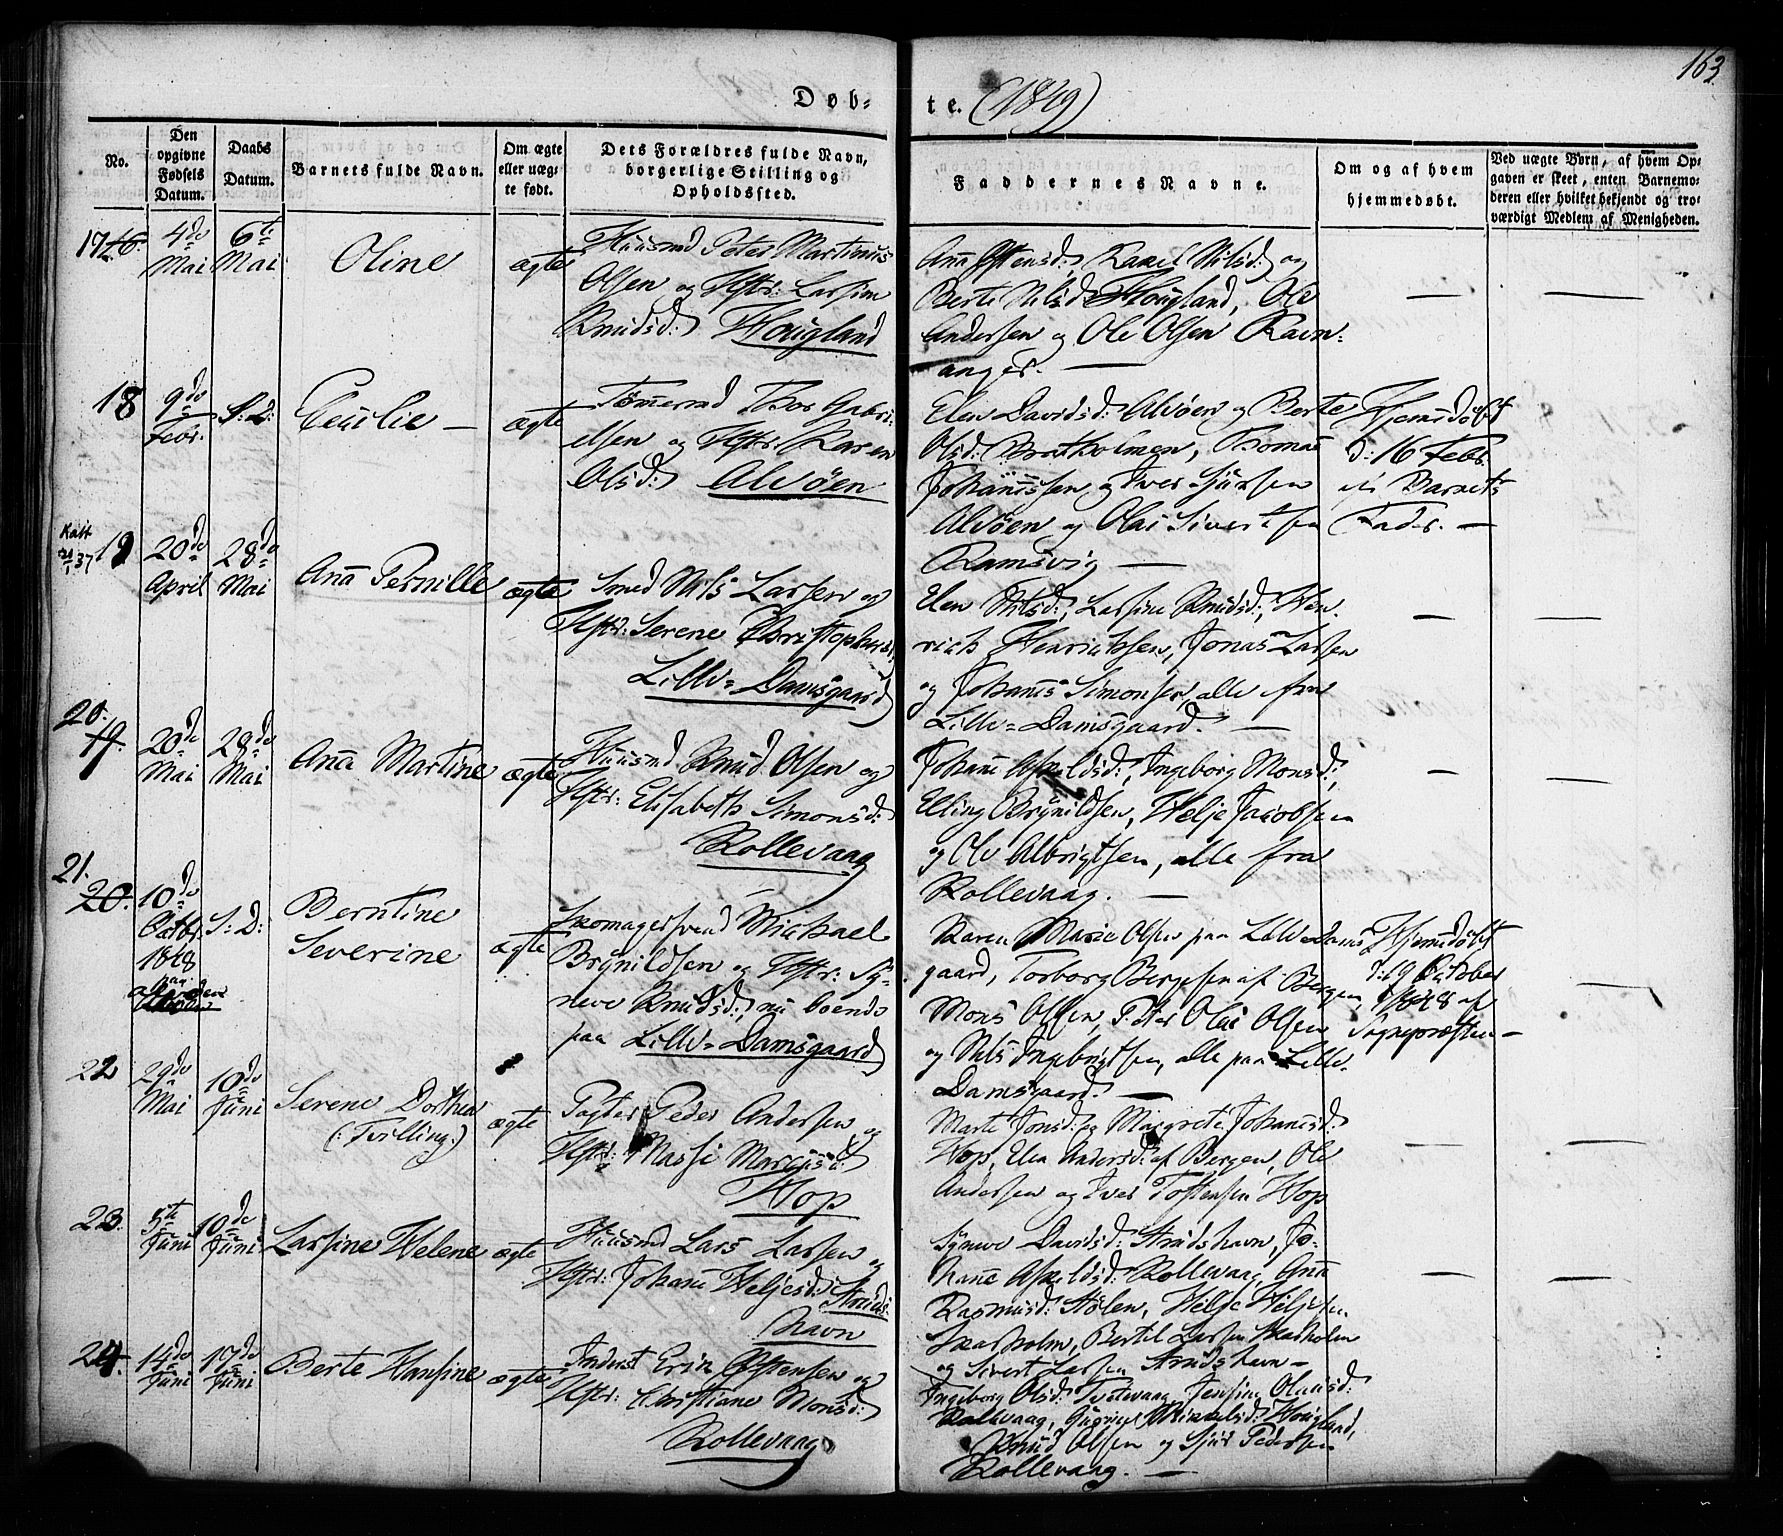 163
Døb-
te. (1849)
No.
Den opgivne Fødsels Datum.
Daabs Datum.
Barnets fulde Navn.
Om ægte eller uægte født.
Dets Forældres fulde Navn, borgerlige Stilling og Opholdssted.
Faddernes Navne.
Om og af hvem hjemmedøbt.
Ved uægte Børn, af hvem Opgaven er skeet, enten Barnemoderen eller hvilket bekjendt og troværdigt Medlem af Menigheden.
17 16.
4de Mai
6te Mai
Oline
ægte
Huusmd Peter Martinus
Olsen og Hstr: Larsine
Knudsd: Hougland
Anna Ostensd:, Rael Nilsd: og
Berte Nilsd: Hougland, Ole
Andersen og Ole Olsen Ravn-
anger. —
18
9de Febr.
S:D:
Cecilie —
ægte
Tømmermd Thos Gabri-
elsen og Hstr: Karen
Olsd: Alvøen
Elen Davidsd: Alvøen og Berte
Olsd: Bratholmen, Thomas
Johannessen og Iver Sjursen
Alvøen og Olai Sivertsen
Ramsvig —
Hjemmedøbt
d: 16 Febr.
af Barnets
Fader. —
19
20de April
28de Mai
Anna Pernille
ægte
Smed Nils Larsen og
Hstr: Serene Christophersd:
Lille-Damsgaard
Elen Nilsd:, Larsine Knudsd:, Hen-
rich Henrichsen, Jonas Larsen
og Johannes Simonsen, alle fra
Lille-Damsgaard. —
20.
19.
20de Mai
28de Mai
Anna Martine
ægte
Huusmd Knud Olsen og
Hstr: Elisabeth Simonsd:
Rollevaag
Johanne Askildsd:, Ingeborg Monsd:,
Elling Brynildsen, Helje Jacobsen
og Ole Albrigtsen, alle fra
Rollevaag. —
21.
20.
10de Octbr. 1848
S:D:
Berntine
Severine
ægte
Skomagersvend Michael
Brynildsen og Hstr: Sy-
neve Knudsd:, nu boende
paa Lille-Damsgaard
Karen Marie Olsen paa Lille Dams-
gaard, Torborg Bergesen af Bergen,
Mons Olsen, Peter Olai Olsen
og Nils Ingebrigtsen, alle paa Lille-
Damsgaard. —
Hjemmedøbt
d: 19 October
1848 af
Sognepræsten —
22
29de Mai
10de Juni
Serene Dorthea
(: Tvilling :)
ægte
Pagter Peder Andersen og
Hstr: Massi Marcusd:
Hop
Marte Jonsd: og Margrete Johannesd:
Hop, Elen Andersd: af Bergen, Ole
Andersen og Iver Tostensen Hop
23.
5te Juni
10de Juni
Larsine Helene
ægte
Huusmd Lars Larsen og
Hstr: Johanne Heljesd: Struds-
havn
Syneve Davidsd: Strudshavn, Jo-
hanne Askildsd: Rollevaag, Anna
Rasmusd: Stølen, Helje Heljesen
Skarholm, Bertel Larsen Skarholm
og Sivert Larsen Strudshavn —
24.
14de Juni
17de Juni
Berte Hansine
ægte
Inderst Erik Ostensen og
Hstr: Christiane Monsd:
Rollevaag
Ingeborg Olsd: Tvetevaag, Jensine Olaisd:
Rollevaag, Mikkelsd: Hougland,
Knud Olsen og Sjur Pedersen
Rollevaag. —